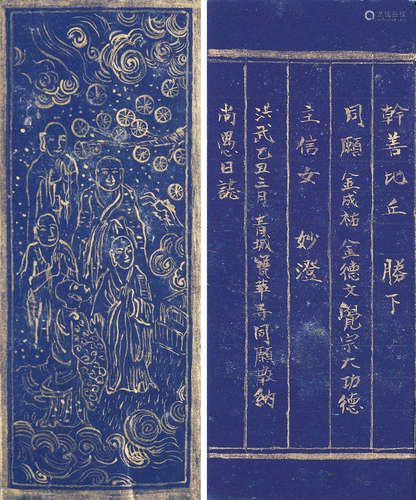 幹善比丘 勝下
同願 金成祐 金德文 覺宗大功德
主信女 妙澄
洪武乙丑三月 青城寶華寺同願敬納
尚愚日誌